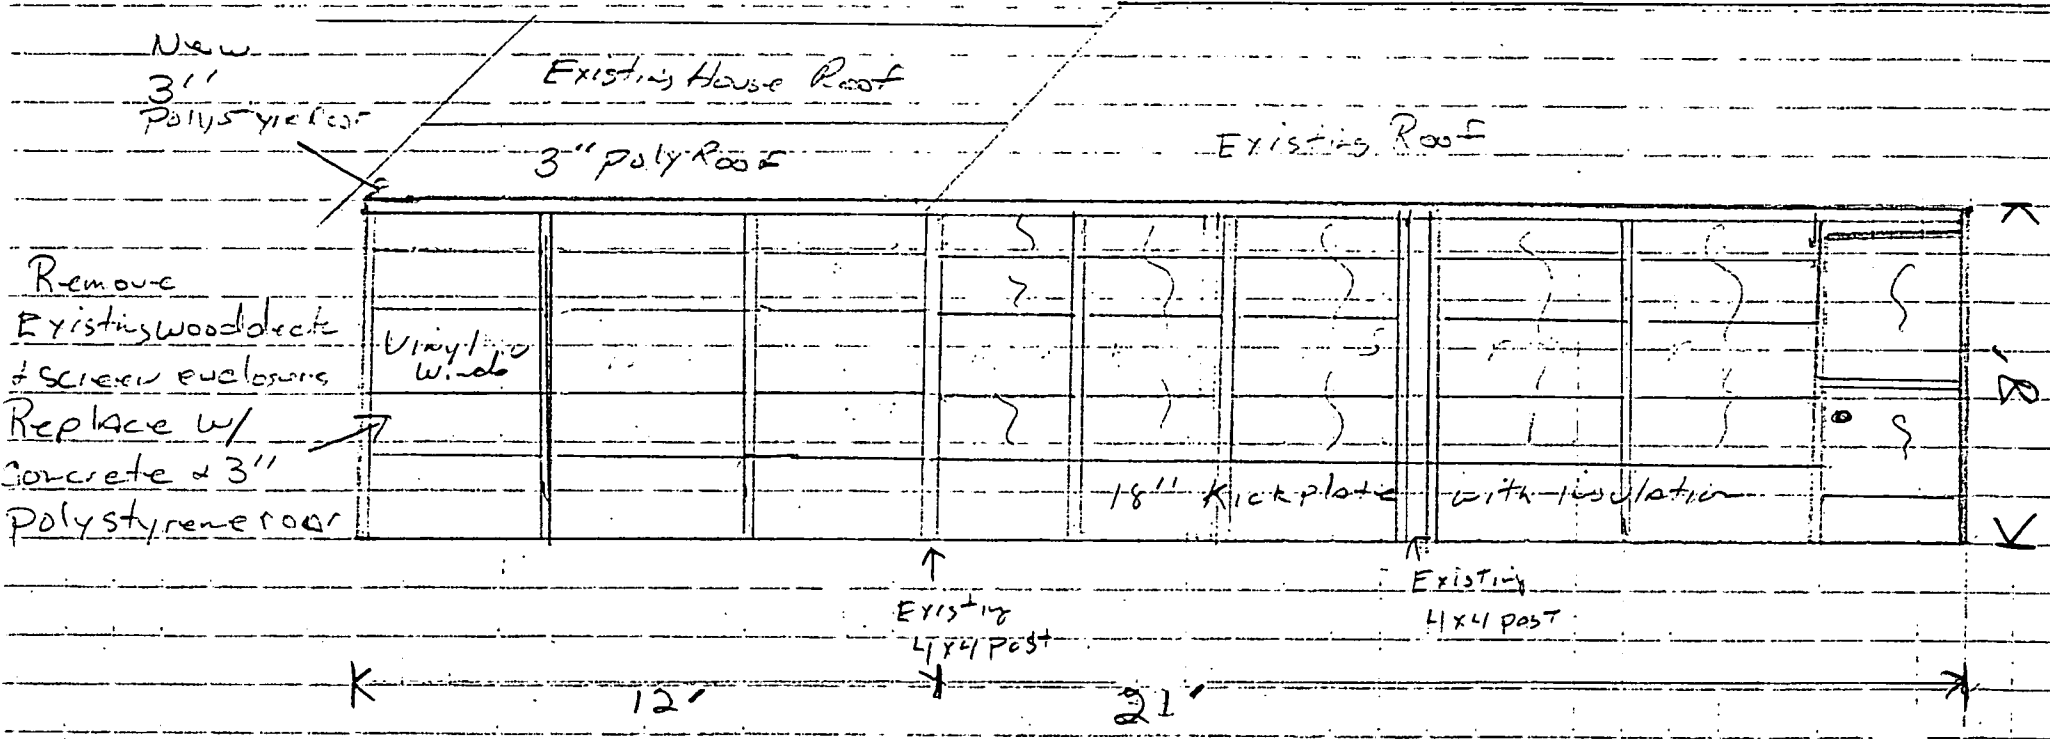 New
3''
Existing House Roof
3'' poly Roof
Existing Roof
Remove
Existing wood deck
& screen enclosure
Replace w/
Concrete & 3''
polystyrene roof
Vinyl
18'' Kickplate with insulation
8'
Existing
4x4 post
Existing
4x4 post
12'
21'